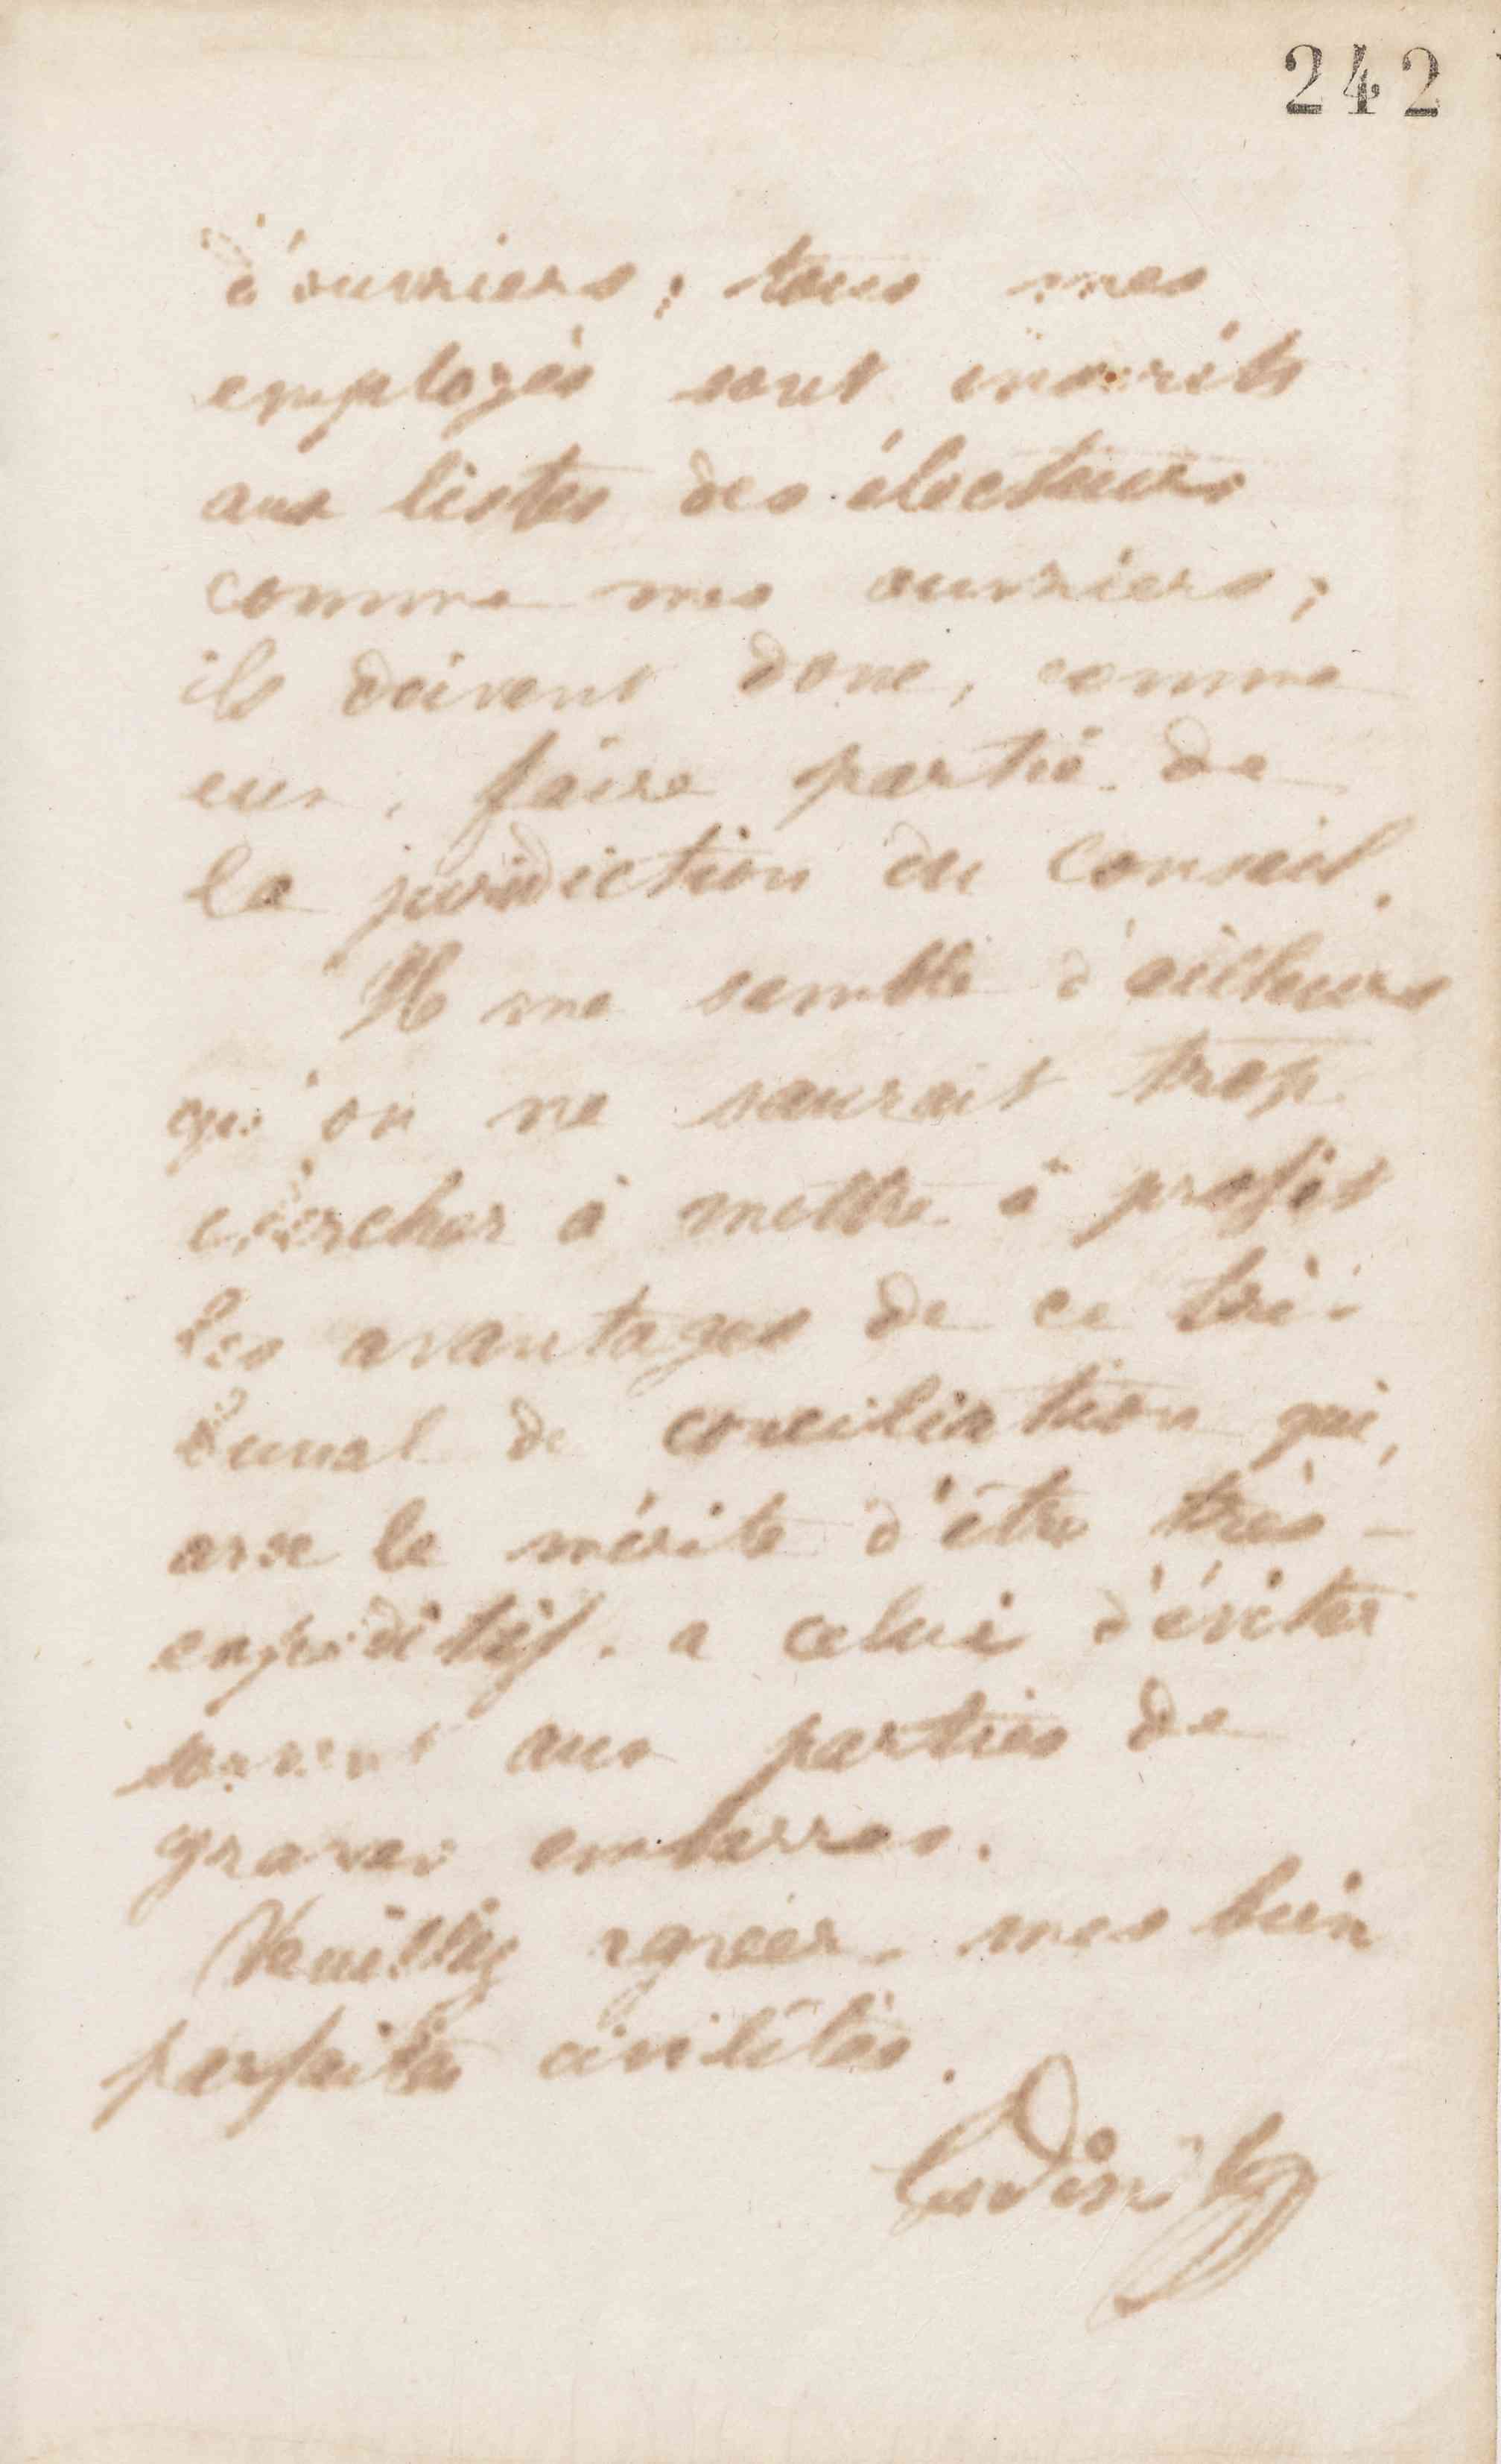 242
d'ouvriers; tous mes
employés sont inscrits
aux listes des électeurs
comme mes ouvriers;
ils doivent donc, comme
eux, faire partie de
la juridiction du Conseil.
Il me semble d'ailleurs
qu'on ne saurait trop
chercher à mettre à profit
les avantages de ce tri-
bunal de conciliation qui,
avec le mérite d'être très-
expéditif, a celui d'éviter
souvent aux parties de
graves embarras.
Veuillez agréer mes bien
parfaites civilités.
Godin